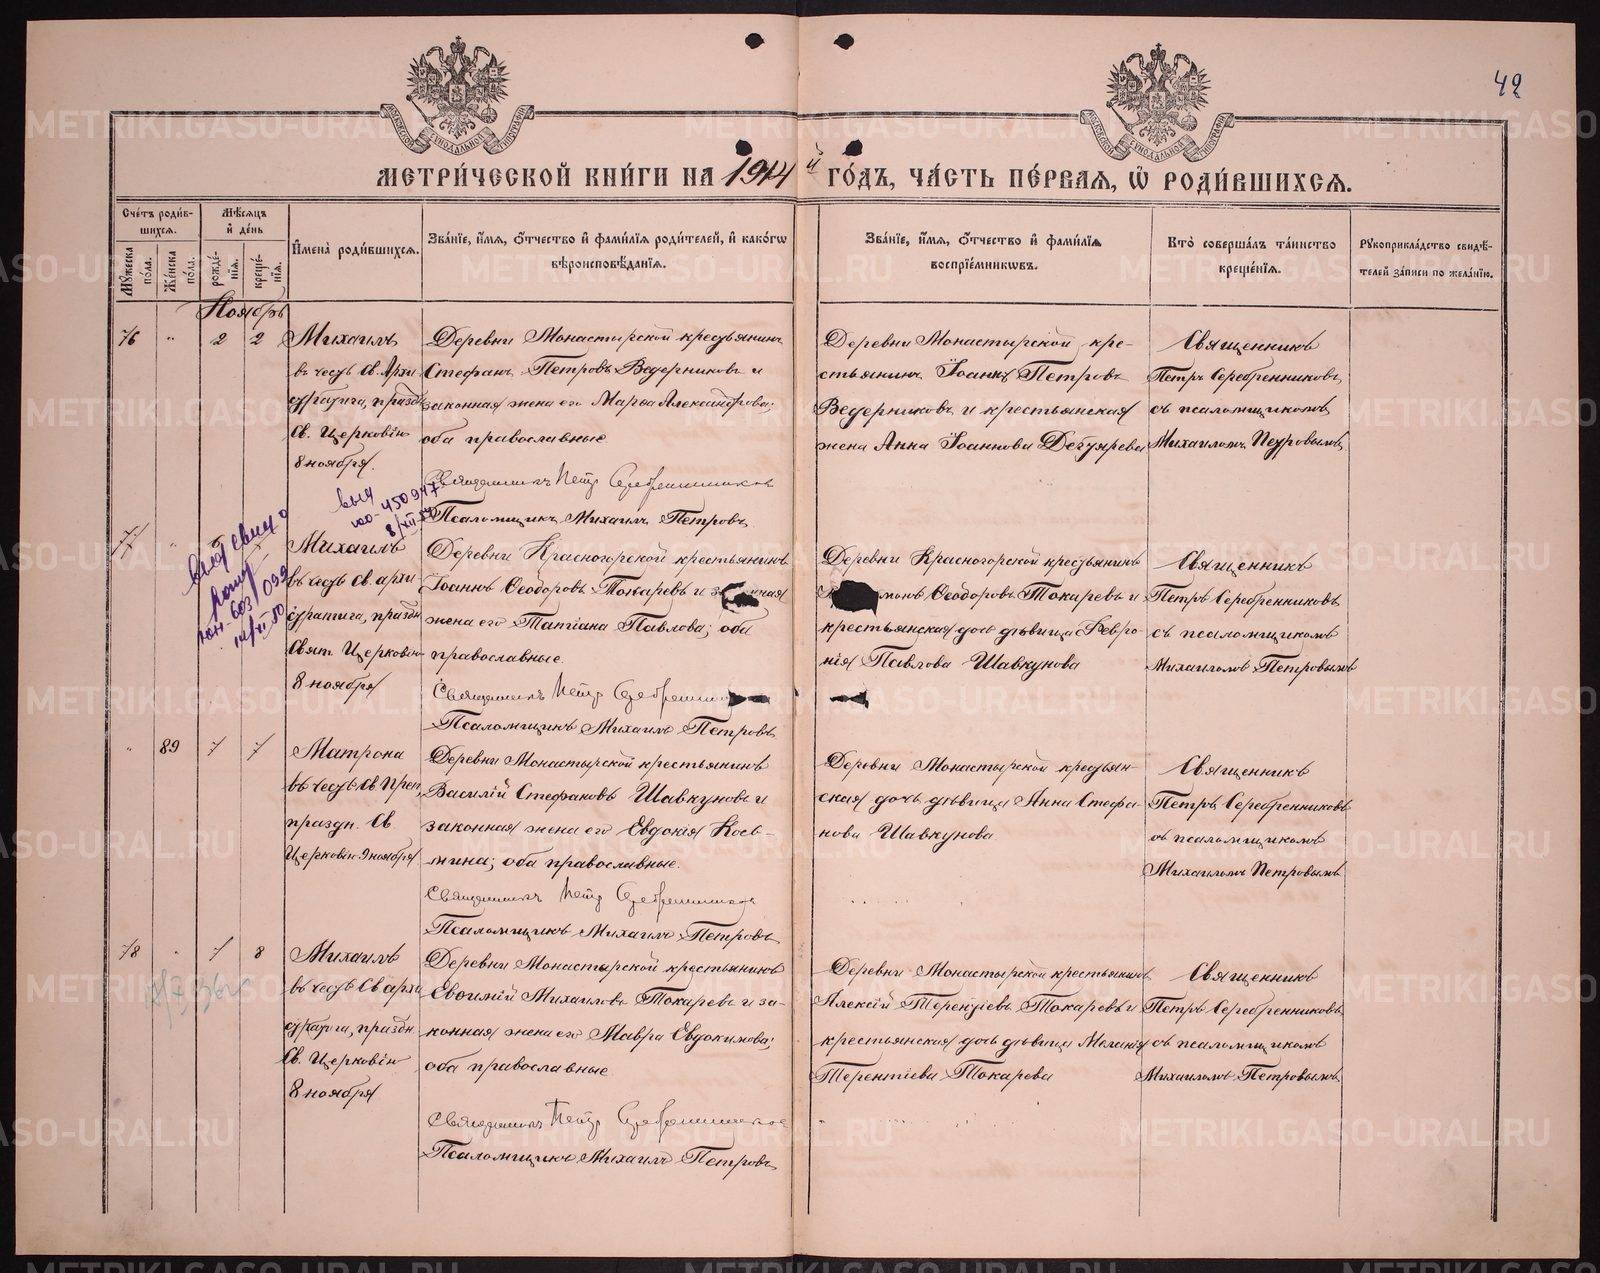 42
МЕТРИ́ЧЕСКОЙ КНИ́ГИ НА 1914 й ГО́ДЪ, ЧА́СТЬ ПЕ́РВАЯ, Ѡ҆ РОДИ́ВШИХСЯ.
Сче́тъ роди́в-
шихся.
Мꙋ́жеска по́ла.
Же́нска по́ла.
Мѣ́сяцъ и҆ де́нь
рожде́-нїя.
креще́-нїя.
И҆мена̀ роди́вшихся.
Зва́нїе, и҆́мя, ѻ҆́тчество и҆ фами́лїя роди́телей, и҆ како́гѡ
вѣроисповѣ́данїя.
Зва́нїе, и҆́мя, ѻ҆́тчество и҆ фами́лїя
воспрїе́мникѡвъ.
Кто̀ соверша́лъ та́инство
креще́нїя.
Рꙋкоприкла́дство свидѣ́-
телей за́писи по жела́нїю.
Ноябрь
76 " 2 2
Михаилъ
въ честь Св. Архи
стратига, праздн.
Св. Церковію
8 ноября.
Деревни Монастырской крестьянинъ
Стефанъ Петровъ Ведерниковъ и
законная жена его Марѳа Александрова;
оба православные
Священникъ Петр Серебренников
Псаломщикъ Михаилъ Петровъ
Деревни Монастырской кре-
стьянинъ Іоаннъ Петровъ
Ведерниковъ и крестьянская
жена Анна Іоаннова Дегтярева
Священникъ
Петръ Серебренниковъ
съ псаломщикомъ
Михаиломъ Петровымъ
77 "
Михаилъ
въ честь Св. архи
стратига, праздн.
Свят. Церковію
8 ноября
Деревни Красногорской крестьянинъ
Іоаннъ Ѳеодоровъ Токаревъ и
жена его Татіана Павлова; оба
православные.
Священникъ Петр
Псаломщикъ Михаилъ Петровъ
Деревни Красногорской крестьянинъ
Ѳеодоровъ Токаревъ и
крестьянская дочь дѣвица Февро-
нія Павлова Шавкунова
Священникъ
Петръ Серебренниковъ
съ псаломщикомъ
Михаиломъ Петровымъ
" 89 7 7
Матрона
въ честь Св. Преп.,
праздн. Св.
Церковію 9 ноября
Деревни Монастырской крестьянинъ
Василій Стефановъ Шавкуновъ и
законная жена его Евдокія Косъ-
мина; оба православные.
Священникъ Петр Серебренников
Псаломщикъ Михаилъ Петровъ
Деревни Монастырской крестьян-
ская дочь дѣвица Анна Стефа-
нова Шавкунова
Священникъ
Петръ Серебренниковъ
съ псаломщикомъ
Михаиломъ Петровымъ
78 " 7 8
Михаилъ
въ честь Св. архи
стратига, праздн.
Св. Церковію
8 ноября
Деревни Монастырской крестьянинъ
Евѳимій Михаиловъ Токаревъ и за-
конная жена его Мавра Евдокимова;
оба православные
Священникъ Петр Серебренников
Псаломщикъ Михаилъ Петровъ
Деревни Монастырской крестьянинъ
Алексій Терентіевъ Токаревъ и
крестьянская дочь дѣвица Меланія
Терентіева Токарева
Священникъ
Петръ Серебренниковъ
съ псаломщикомъ
Михаиломъ Петровымъ
METRIKI.GASO-URAL.RU